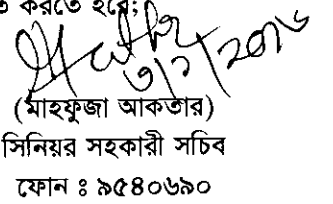 করতে হবে;
৩/১/২০১৬
(মাহফুজা আকতার)
সিনিয়র সহকারী সচিব
ফোন ঃ ৯৫৪০৬৯০